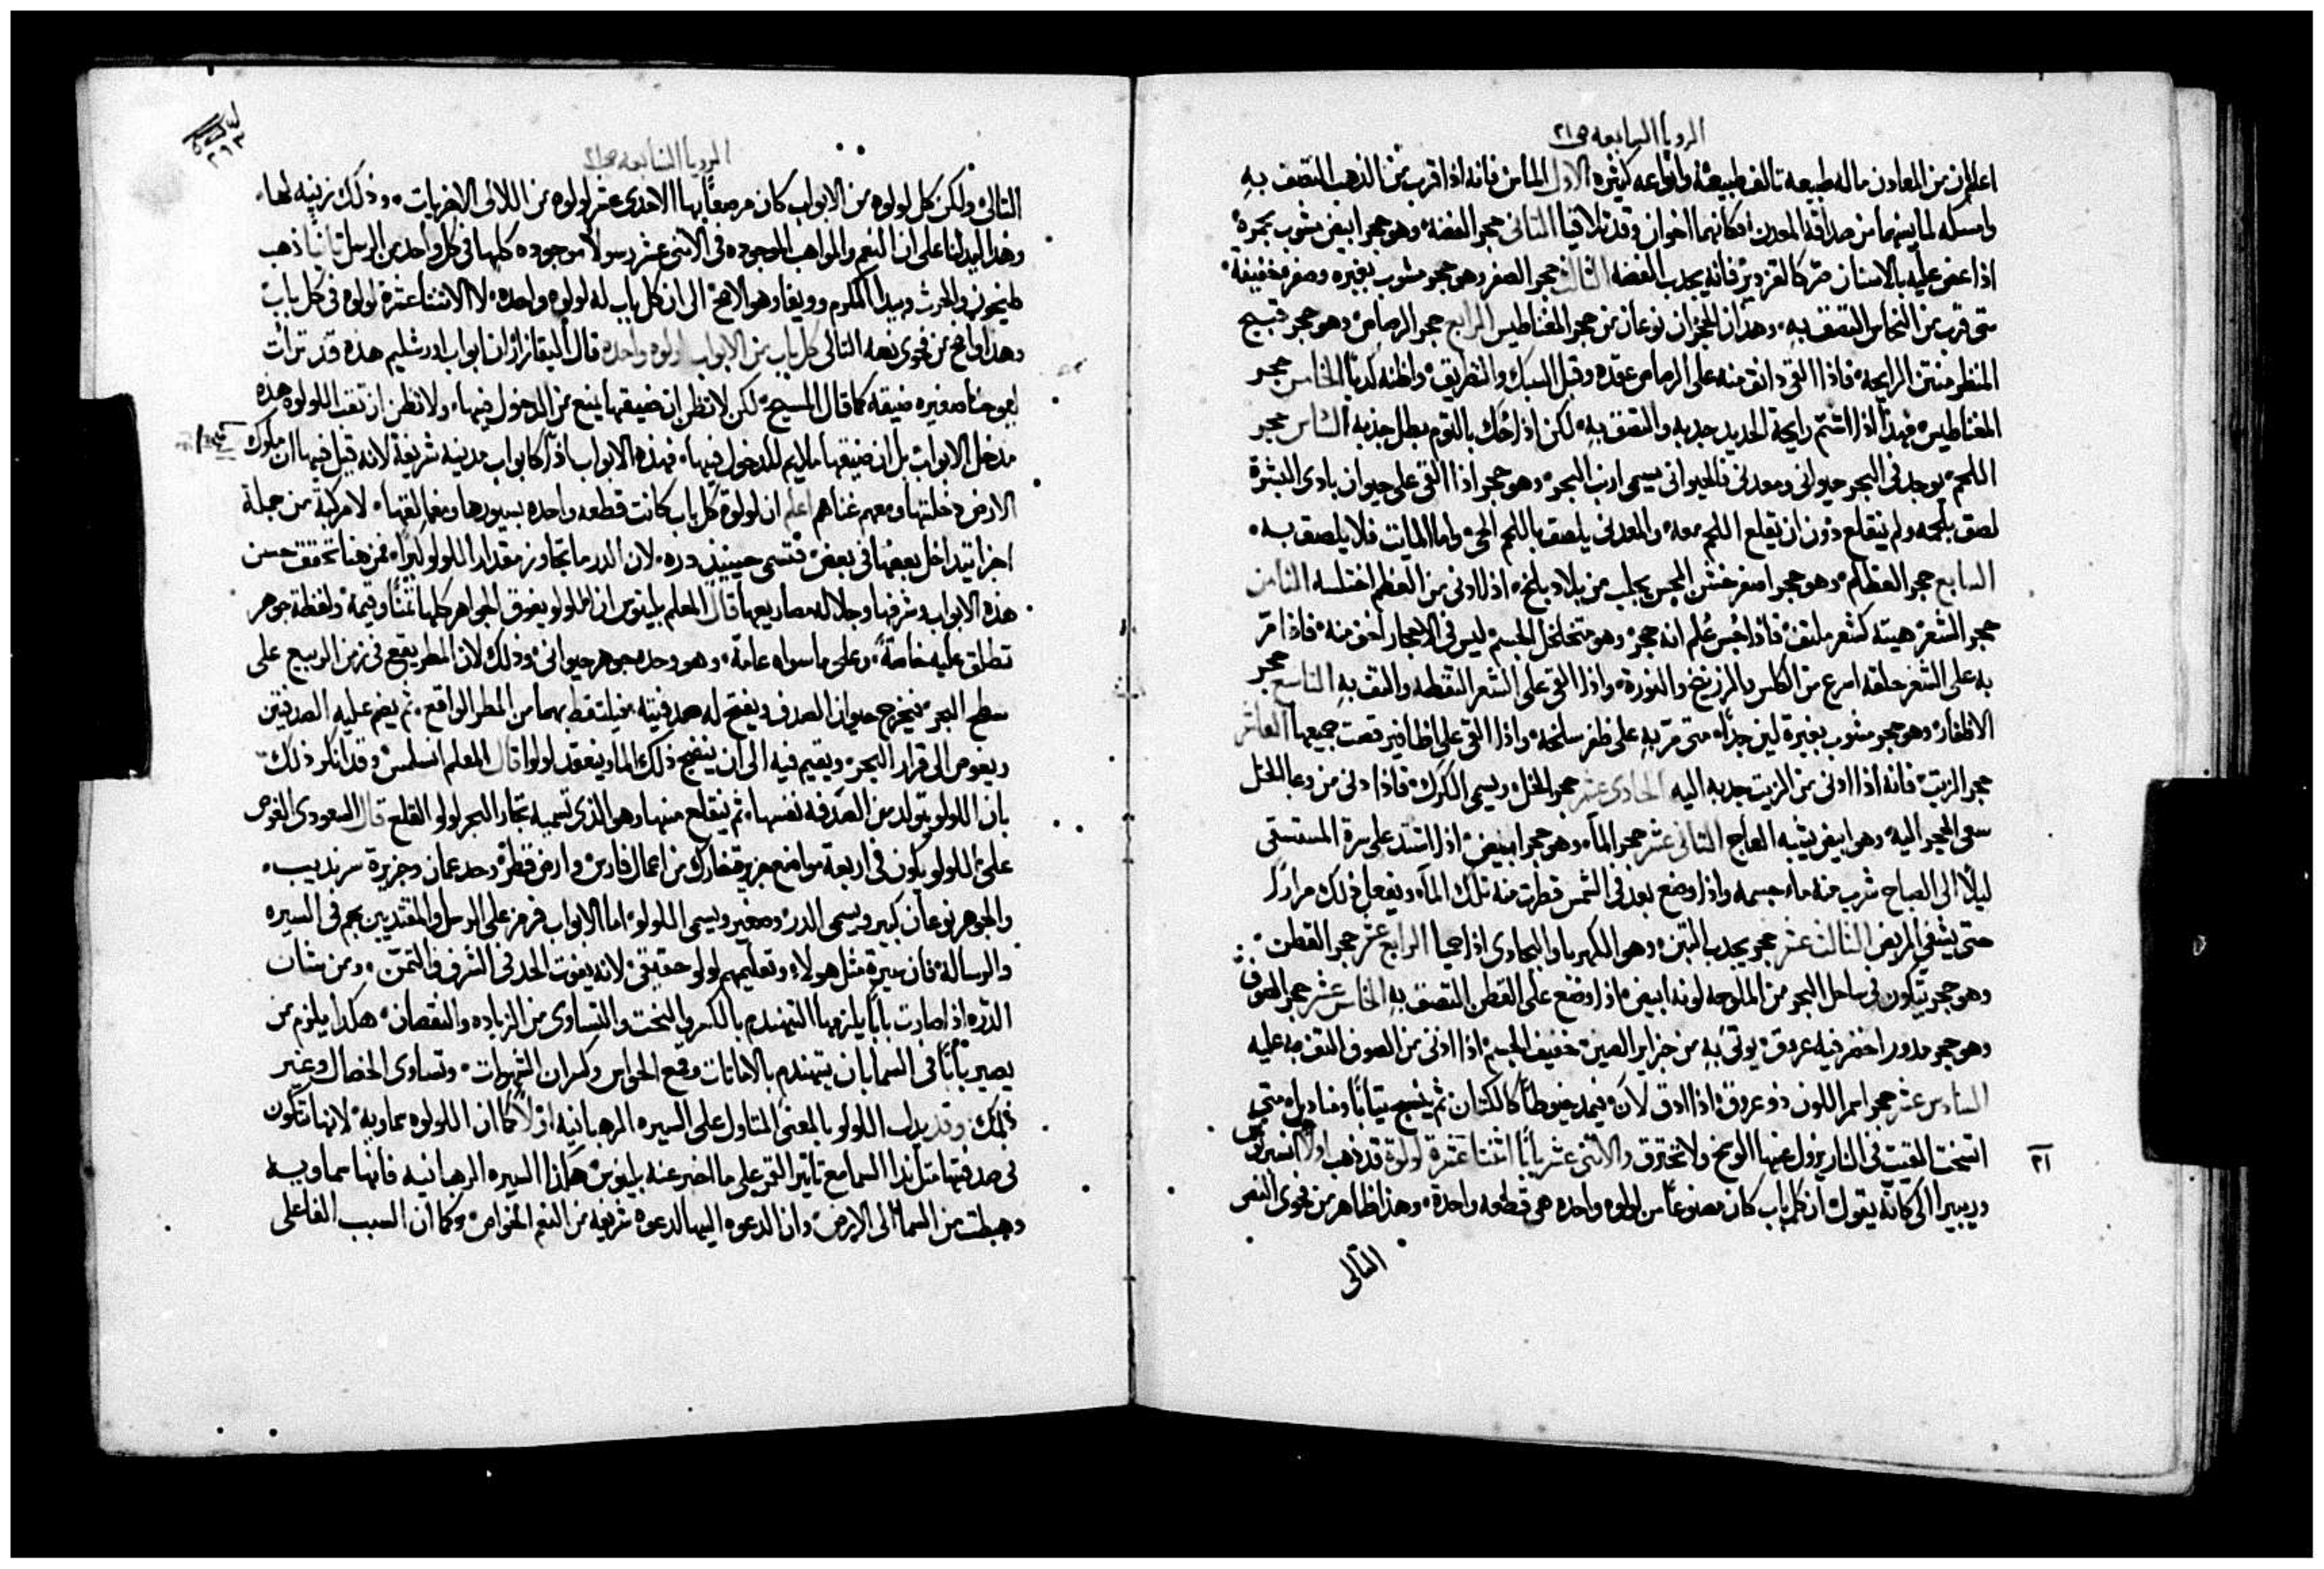 الرويا السابعه ص٢١
اعلم ان من المعادن ماله طبيعه تالف طبيعة وانواعه كثيره الاول الماس فانه اذا قرب من الذهب التصق به
وامسكه لما بينهما من صداقة المعدن فكانهما اخوان وقد تلاقيا الثاني حجر الفضة وهو حجر ابيض مشوب بحمرة
اذا عض عليه بالاسنان صر كالقزدير فانه يجدب الفضه الثالث حجر الصفر وهو حجر مشوب بغبره وصفره خفيفة
متى قرب من النحاس التصق به وهذان الحجران نوعان من حجر المغناطيس الرابع حجر الرصاص وهو حجر قبيح
المنظر منتن الرايحه فاذا القي دانق منه على الرصاص عقده وقبل السبك والتطريق واظنه كديا الخامس حجر
المغناطيس فهذا اذا اشتم رايحة الحديد جدبه والتصق به لكن اذا حك بالثوم بطل جذبه السادس حجر
اللحم يوجد في البحر حيواني ومعدني فالحيواني يسمى ارنب البحر وهو حجر اذا القي على حيوان بادى البشرة
لصق بلحمه ولم ينقلع دون ان يقلع اللحم معه والمعدني يلصق باللحم الحي واما المايت فلا يلصق به
السابع حجر العظام وهو حجر اصفر خشن المجس يجلب من بلاد بلخ اذا ادني من العظم اختلسه الثامن
حجر الشعر هيته كشعر ملتف فاذا جس علم انه حجر وهو متخلخل الجسم ليس في الاحجار اخف منه فاذا مر
به على الشعر حلقه اسرع من الكلس والزرنيخ والنورة واذا القي على الشعر التقطه والتف به التاسع حجر
الاظفار وهو حجر مشوب بغبرة لين جدا متى مر به على ظفر سلخه واذا القي على اظافير قصت جميعها العاشر
حجر الزيت فانه اذا ادني من الزيت جدبه اليه الحادي عشر حجر الخل ويسمى الكرك فاذا دني من وعا الخل
سعى الحجر اليه وهو ابيض يشبه العاج الثاني عشر حجر الماء وهو حجر ابيض اذا اشتد على سرة المستسقي
ليلا الى الصباح شرب منه ماء جسمه واذا وضع بعد في الشمس قطرت منه تلك الماء ويفعل ذلك مرارا
حتى يشفي المريض الثالث عشر حجر يجدب التبن وهو الكهربا والبجادي اذا حميا الرابع عشر حجر القطن
وهو حجر يتكون في ساحل البحر من الملوحه لونه ابيض اذا وضع على القطن التصق به الخامس عشر حجر الصوف
وهو حجر مدور اخضر فيه عروق يوتى به من جزاير الصين خفيف الجسم اذا ادني من الصوف التف به عليه
السادس عشر حجر احمر اللون ذو عروق اذا ادق لان فيمد خيوطا كالكتان ثم ينسج ثيابا ومناديل متى
اتسخت القيت في النار يزول عنها الوسخ ولا تحترق والاثني عشر بابا اثنتا عشرة لولوة قد ذهب اولا
وريبيرا الى كانه يقول ان كل باب كان مصنوعا من لولوه واحده هي قطعه واحدة وهذا ظاهر من فحوى النص
٢١
التالي
الرويا السابعه ص٢١
التالي ولكن كل لولوه من الابواب كان مرصعا بها الاحدى عشر لولوه من اللالي الاخريات وذلك زينه لها
وهذا ليدلنا على ان النعم والمواهب الموجوده في الاثني عشر رسولا موجوده كلها في كل واحد من الرسل ثانيا ذهب
وهو الاصح الى ان كل باب له لولوه واحده لا الاثنتا عشرة لولوه في كل باب
وهذا واضح من فحوى نصه التالي كل باب من الابواب لولوه واحده قال اليقازار ان ابواب اورشليم هذه قد ترات
ليوحنا صغيره ضيقه كما قال المسيح لكن لا تظن ان ضيقها يمنع من الدخول فيها ولا تظن ان تقب اللولوه هذه
مدخل الابواب بل ان ضيقها ملايم للدخول فيها فهذه الابواب اذا كابواب مدينه شريفة لانه قيل فيها ان ملوك
الارض دخلتها ومعهم غناهم اعلم ان لولوة كل باب كانت قطعه واحده بسورها لا مركبة من جملة
اجزا تيداخل بعضها في بعض فتسمى حينيذ دره لان الدر ما تجاوز مقدار اللولو كبرا فمن هنا تحقق حسن
هذه الابواب وشرفها وجلاله مصاريعها قال المعلم بلينوس ان اللولو يفوق الجواهر كلها ثمنا وقيمة ولفظة جوهر
تطلق عليه خاصة وعلى ما سواه عامة وهو وحده جوهر حيواني وذلك لان المطر يقع في زمن الربيع على
سطح البحر فيخرج حيوان الصدف ويفتح له صدفيته فيلتقط بهما من المطر الواقع ثم يضم عليه الصدفتين
ويغوص الى قرار البحر ويقيم فيه الى ان ينضج ذلك الما وينعقد لولوا قال المعلم انسلمس وقد انكر ذلك
بان اللولو يتولد من الصدفه نفسها ثم ينقلع منها وهو الذي تسميه تجار البحر لولو القلع قال المسعودي الغوص
على اللولو يكون في اربعة مواضع جزيرة خارك من اعمال فارس وارض قطر وحد عمان وجزيرة سرنديب
والجوهر نوعان كبير ويسمى الدر وصغير ويسمى اللولو اما الابواب فرمز على الرسل والمقتديين بهم في السيره
والرساله فان سيرة مثل هولاء وتعليمهم لولو حقيقي لانه يفوت الحد في الشرف والتمن ومن شان
الدره اذا صارت بابا يلزمها التهندم بالكسر والنحت والتساوي من الزياده والنقصان هكذا يلزم من
يصير بابا في السما بان يتهندم بالاماتات وقمع الحواس وكسران الشهوات وتساوى الخصال وغير
ذلك وقد يدل اللولو بالمعنى المتاول على السيره الرهبانيه اولا كما ان اللولوه سماويه لانها تتكون
في صدفتها من ندا السما مع تاثير القمر على ما اخبر عنه بلينوس هكذا السيره الرهبانيه فانها سماويه
وهبطت من السما الى الارض وان الدعوه اليها لدعوه شريفه من النعم الخواص وكما ان السبب الفاعلي